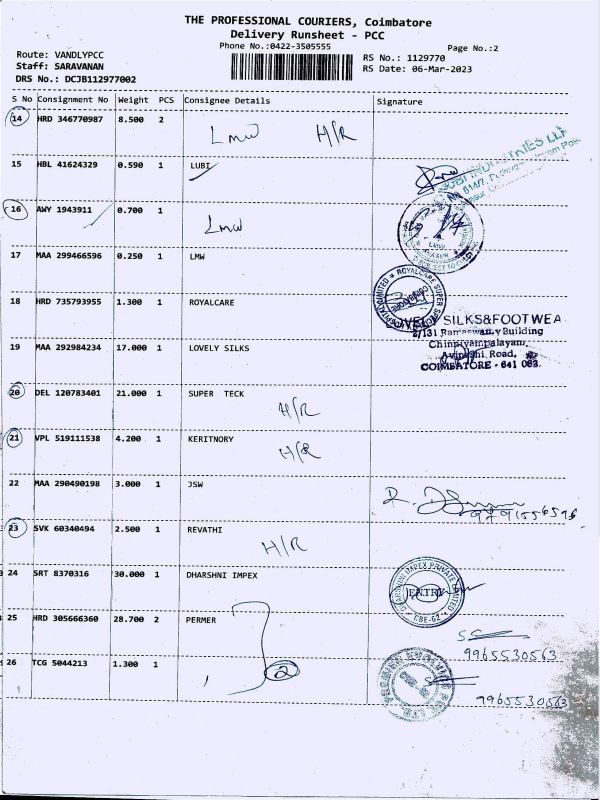 THE PROFESSIONAL COURIERS, Coimbatore
Delivery Runsheet - PCC
Phone No.:0422-3505555
Page No.:2
Route: VANDLYPCC
Staff: SARAVANAN
DRS No.: DCJB112977002
RS No.: 1129770
RS Date: 06-Mar-2023
S No Consignment No Weight PCS Consignee Details Signature
14 HRD 346770987 8.500 2 LMW H/R
15 HBL 41624329 0.590 1 LUBI
16 AWY 1943911 0.700 1 LMW
17 MAA 299466596 0.250 1 LMW
18 HRD 735793955 1.300 1 ROYALCARE
SILKS&FOOTWEA
2/131 Ramaswamy Building
Chinniyampalayam,
Avinashi Road,
COIMBATORE - 641 062.
19 MAA 292984234 17.000 1 LOVELY SILKS
20 DEL 120783401 21.000 1 SUPER TECK H/R
21 VPL 519111538 4.200 1 KERITNORY H/R
22 MAA 290490198 3.000 1 JSW
23 SVK 60340494 2.500 1 REVATHI H/R
24 SRT 8370316 30.000 1 DHARSHNI IMPEX
ENTRY
CBE-62
25 HRD 305666360 28.700 2 PERMER
9965530563
26 TCG 5044213 1.300 1 2
9965530563